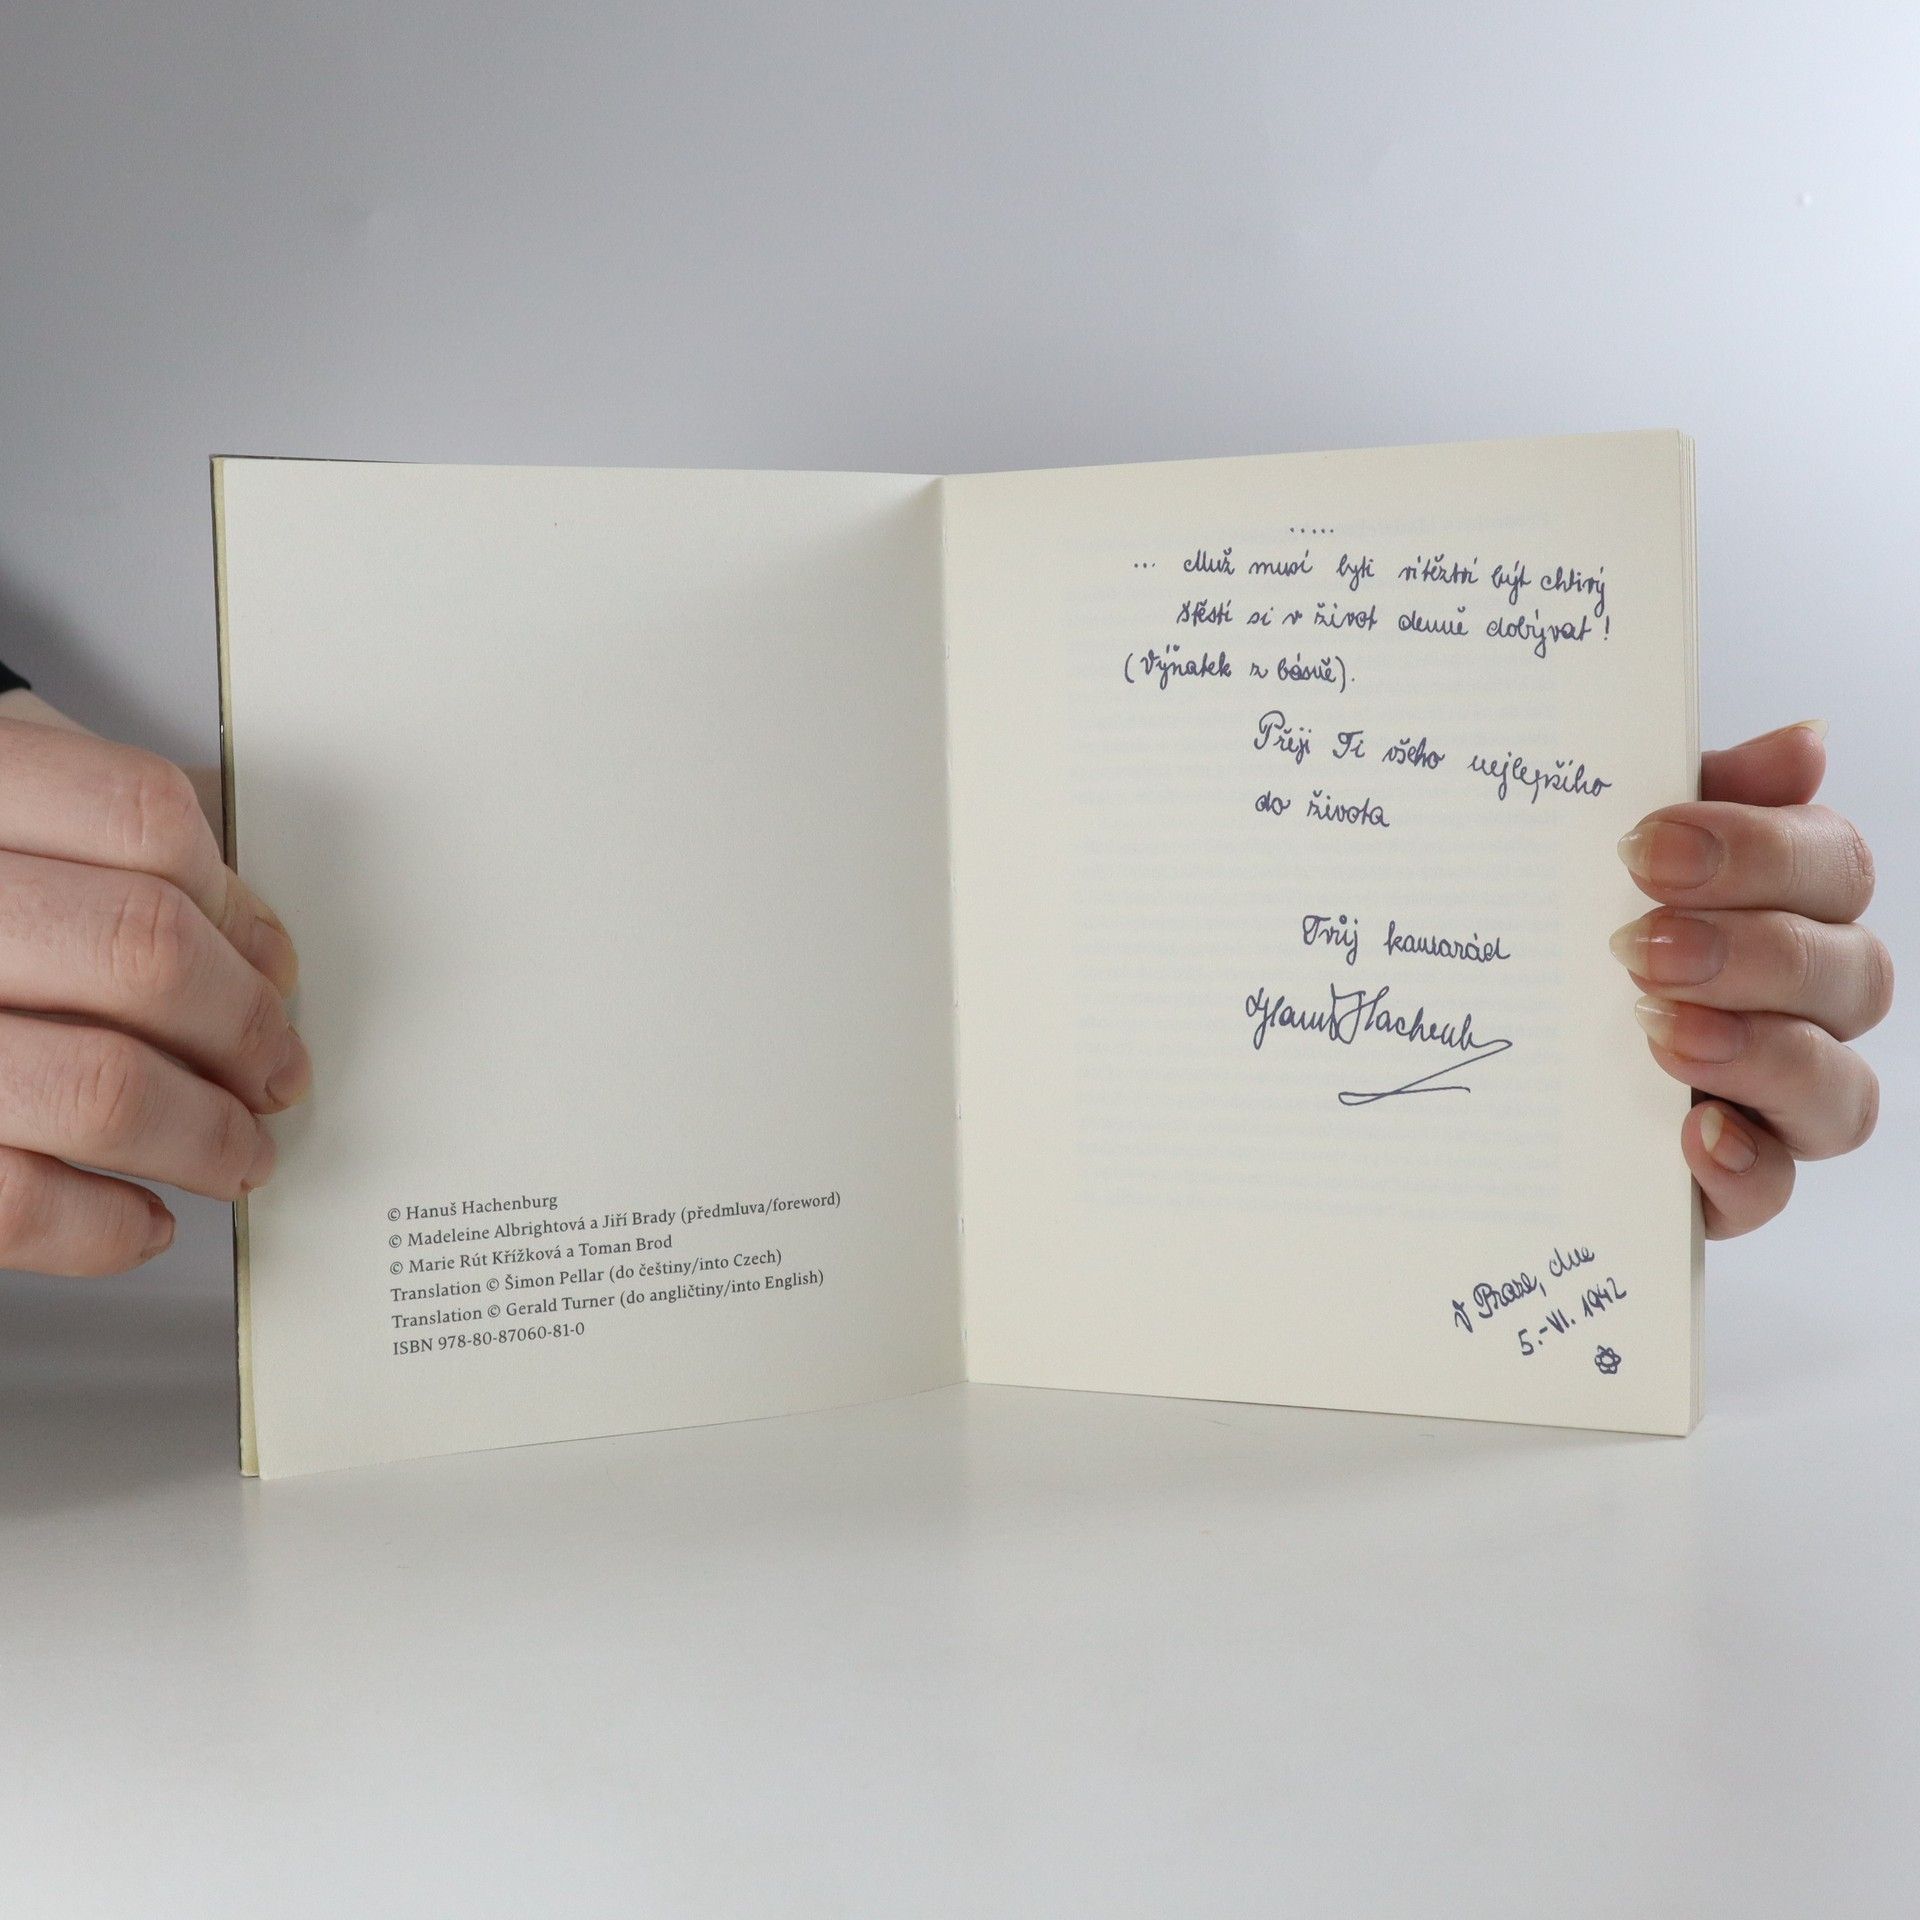 © Hanuš Hachenburg
© Madeleine Albrightová a Jiří Brady (předmluva/foreword)
© Marie Rút Křížková a Toman Brod
Translation © Šimon Pellar (do češtiny/into Czech)
Translation © Gerald Turner (do angličtiny/into English)
ISBN 978-80-87060-81-0
.....
... Muž musí byti vítěztví být chtivý
štěstí si v život denně dobývat!
(Výňatek z básně).
Přeji Ti všeho nejlepšího
do života
Tvůj kamarád
Hanuš Hachenb
V Praze, dne
5.-VI. 1942